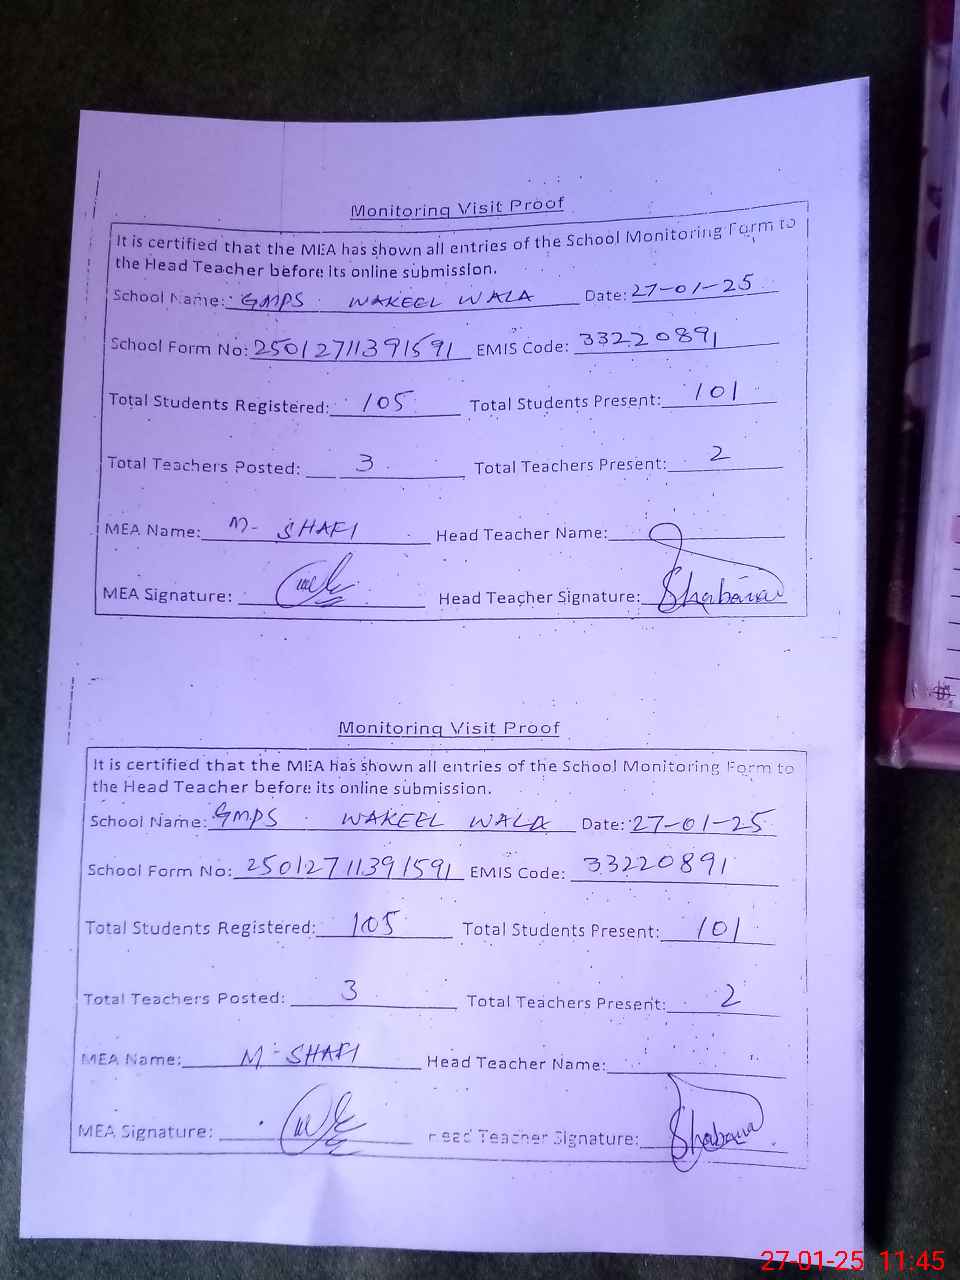 Monitoring Visit Proof
It is certified that the MEA has shown all entries of the School Monitoring Form to
the Head Teacher before its online submission.
School Name: GMPS WAKEEL WALA Date: 27-01-25
School Form No: 25012711391591 EMIS Code: 33220891
Total Students Registered: 105 Total Students Present: 101
Total Teachers Posted: 3 Total Teachers Present: 2
MEA Name: M- SHAFI Head Teacher Name:
MEA Signature: Head Teacher Signature: Shabana
Monitoring Visit Proof
It is certified that the MEA has shown all entries of the School Monitoring Form to
the Head Teacher before its online submission.
School Name: GMPS WAKEEL WALA Date: 27-01-25
School Form No: 25012711391591 EMIS Code: 33220891
Total Students Registered: 105 Total Students Present: 101
Total Teachers Posted: 3 Total Teachers Present: 2
MEA Name: M- SHAFI Head Teacher Name:
MEA Signature: Head Teacher Signature: Shabana
27-01-25 11:45